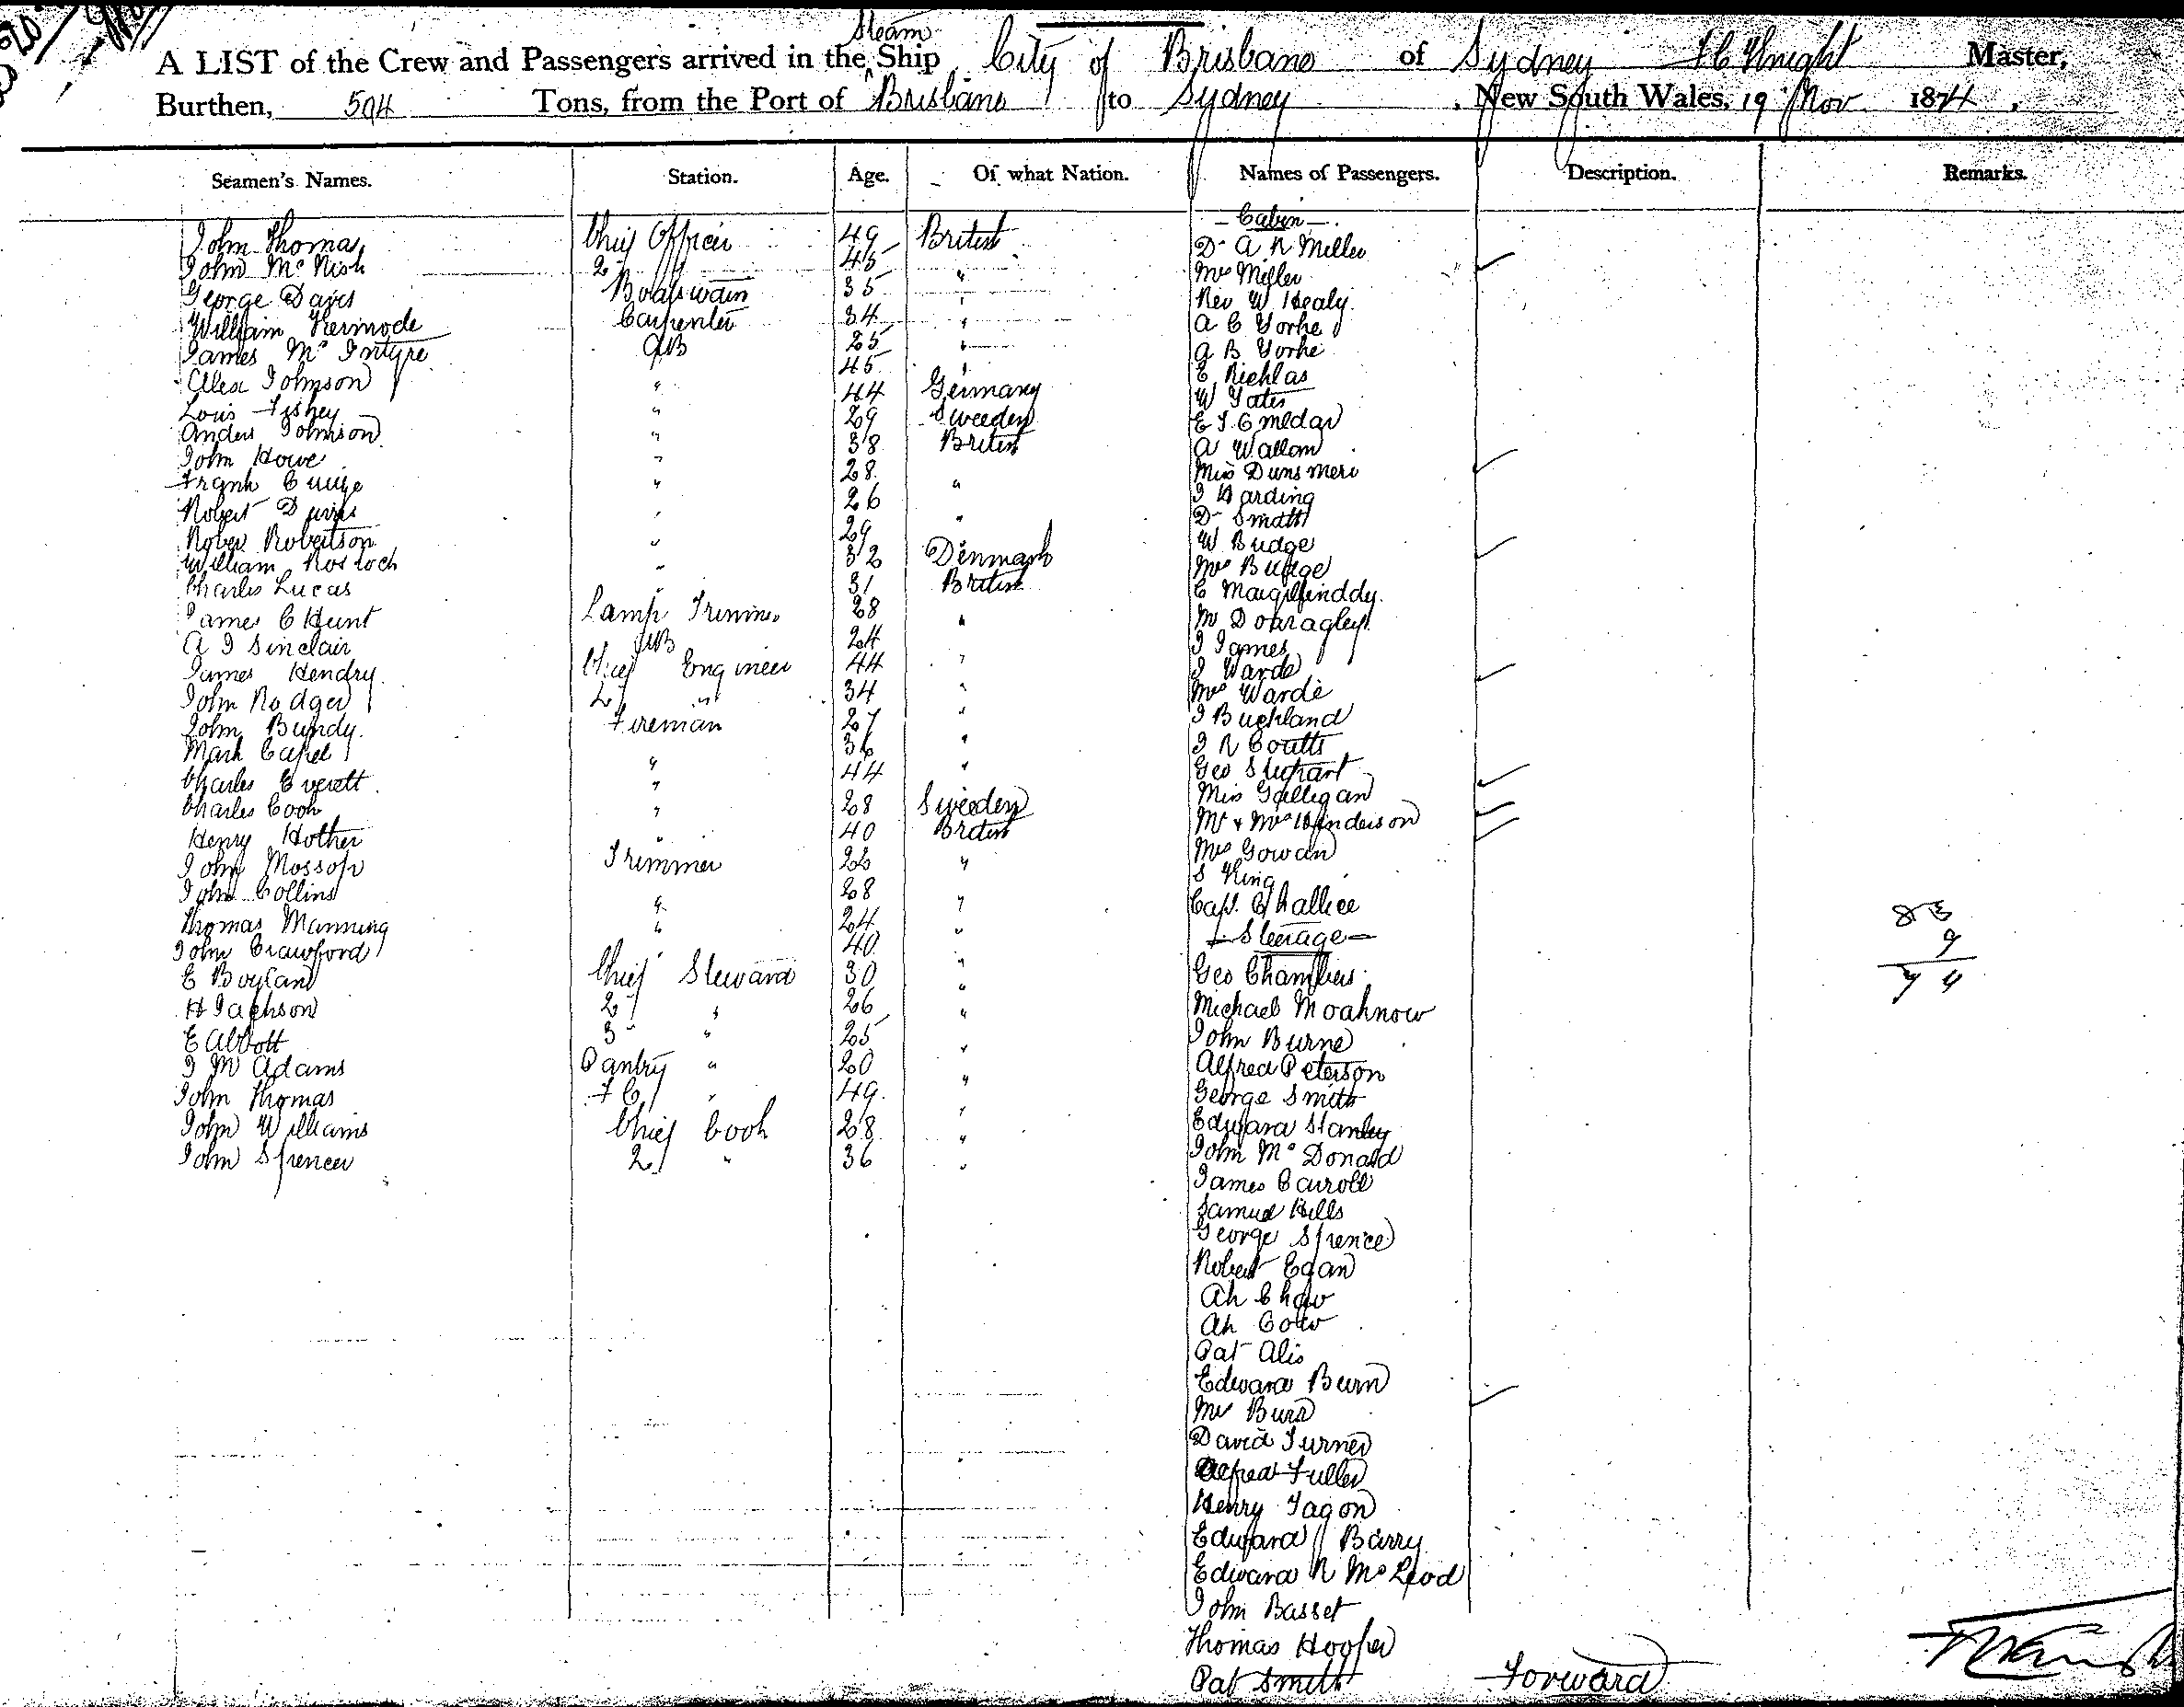 Steam
A LIST of the Crew and Passengers arrived in the Ship City of Brisbane of Sydney F C Knight Master,
Burthen, 504 Tons, from the Port of Brisbane to Sydney, New South Wales, 19 Nov 1874,
Seamen's Names. Station. Age. Of what Nation. Names of Passengers. Description. Remarks.
— Cabin —
John Thomas Chief Officer 49 British Dr A R Miller
John McNish 2 " 45 " Mrs Miller
George Davis Boatswain 35 " Rev W Healy
William Kermode Carpenter 34 " A C Yorke
James McIntyre AB 25 " A B Yorke
Alex Johnson " 45 " E
Louis " 44 Germany W Yates
Anders Johnson " 29 Sweeden E J
John Howe " 38 British A
Frank " 28 " Miss Dunsmere
Robert Davis " 26 " J Harding
Robert Robertson " 29 " Dr Small
William " 32 Denmark W Budge
Charles Lucas " 31 British Mrs Budge
James C Hunt Lamp Trimmer 28 " C
A J Sinclair AB 24 " M
James Hendry Chief Engineer 44 " J James
John Rodger 2 " 34 " J Warde
John Bundy Fireman 27 " Mrs Warde
Mark Capel " 36 " J Buckland
Charles Everett " 44 " J R Coutts
Charles Cook " 28 Sweeden Geo
Henry Hother " 40 British Miss Galligan
John Mossop Trimmer 22 " Mr & Mrs Henderson
John Collins " 28 " Mrs Gowan
Thomas Manning " 24 " S King
John Crawford 40 " Capt. Challice
— Steerage —
E Boyland Chief Steward 30 " Geo Chambers
H Jackson 2 " 26 " Michael Moahnow
E Abbott 3 " 25 " John Burne
J M Adams Pantry " 20 " Alfred Peterson
John Thomas F C " 49 " George Smith
John Williams Chief Cook 28 " Edward Stanley
John Spencer 2 " 36 " John McDonald
James Carroll
Samuel Hills
George Spence
Robert Egan
Ah Chow
Ah Cow
Pat Alis
Edward Burn
Mrs Burn
David Turner
Alfred Fuller
Henry Fagon
Edward Barry
Edward R McLeod
John Basset
Thomas Hooper
Pat Smith Forward
83
9
74